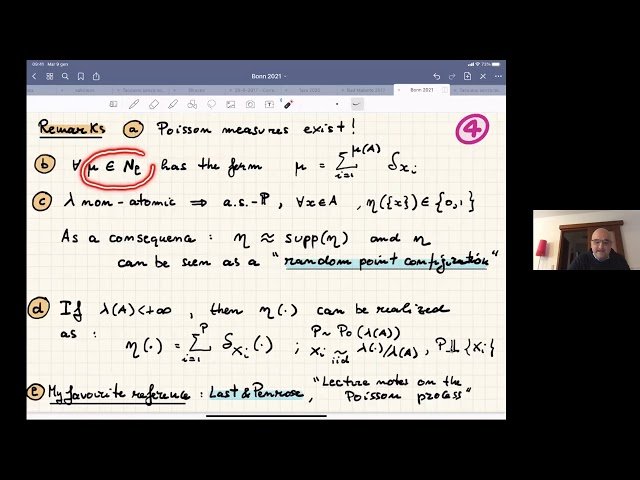 09:41 Mar 9 gen
73%
Bonn 2021
Bonn 2021
Remarks (a) Poisson measures exist! (4)
(b) ∀ μ ∈ N_L has the form μ = Σ_{i=1}^{μ(A)} δ_{x_i}
(c) λ non-atomic ⇒ a.s.-ℙ, ∀x∈A, η({x}) ∈ {0,1}
As a consequence : η ≈ supp(η) and η
can be seen as a "random point configuration"
(d) If λ(A)<+∞, then η(·) can be realized
as : η(·) = Σ_{i=1}^{P} δ_{X_i}(·) ; P ~ Po(λ(A)) X_i ~iid λ(·)/λ(A), P ⫫ {X_i}
(e) My favourite reference : Last & Penrose, "Lecture notes on the
Poisson process"